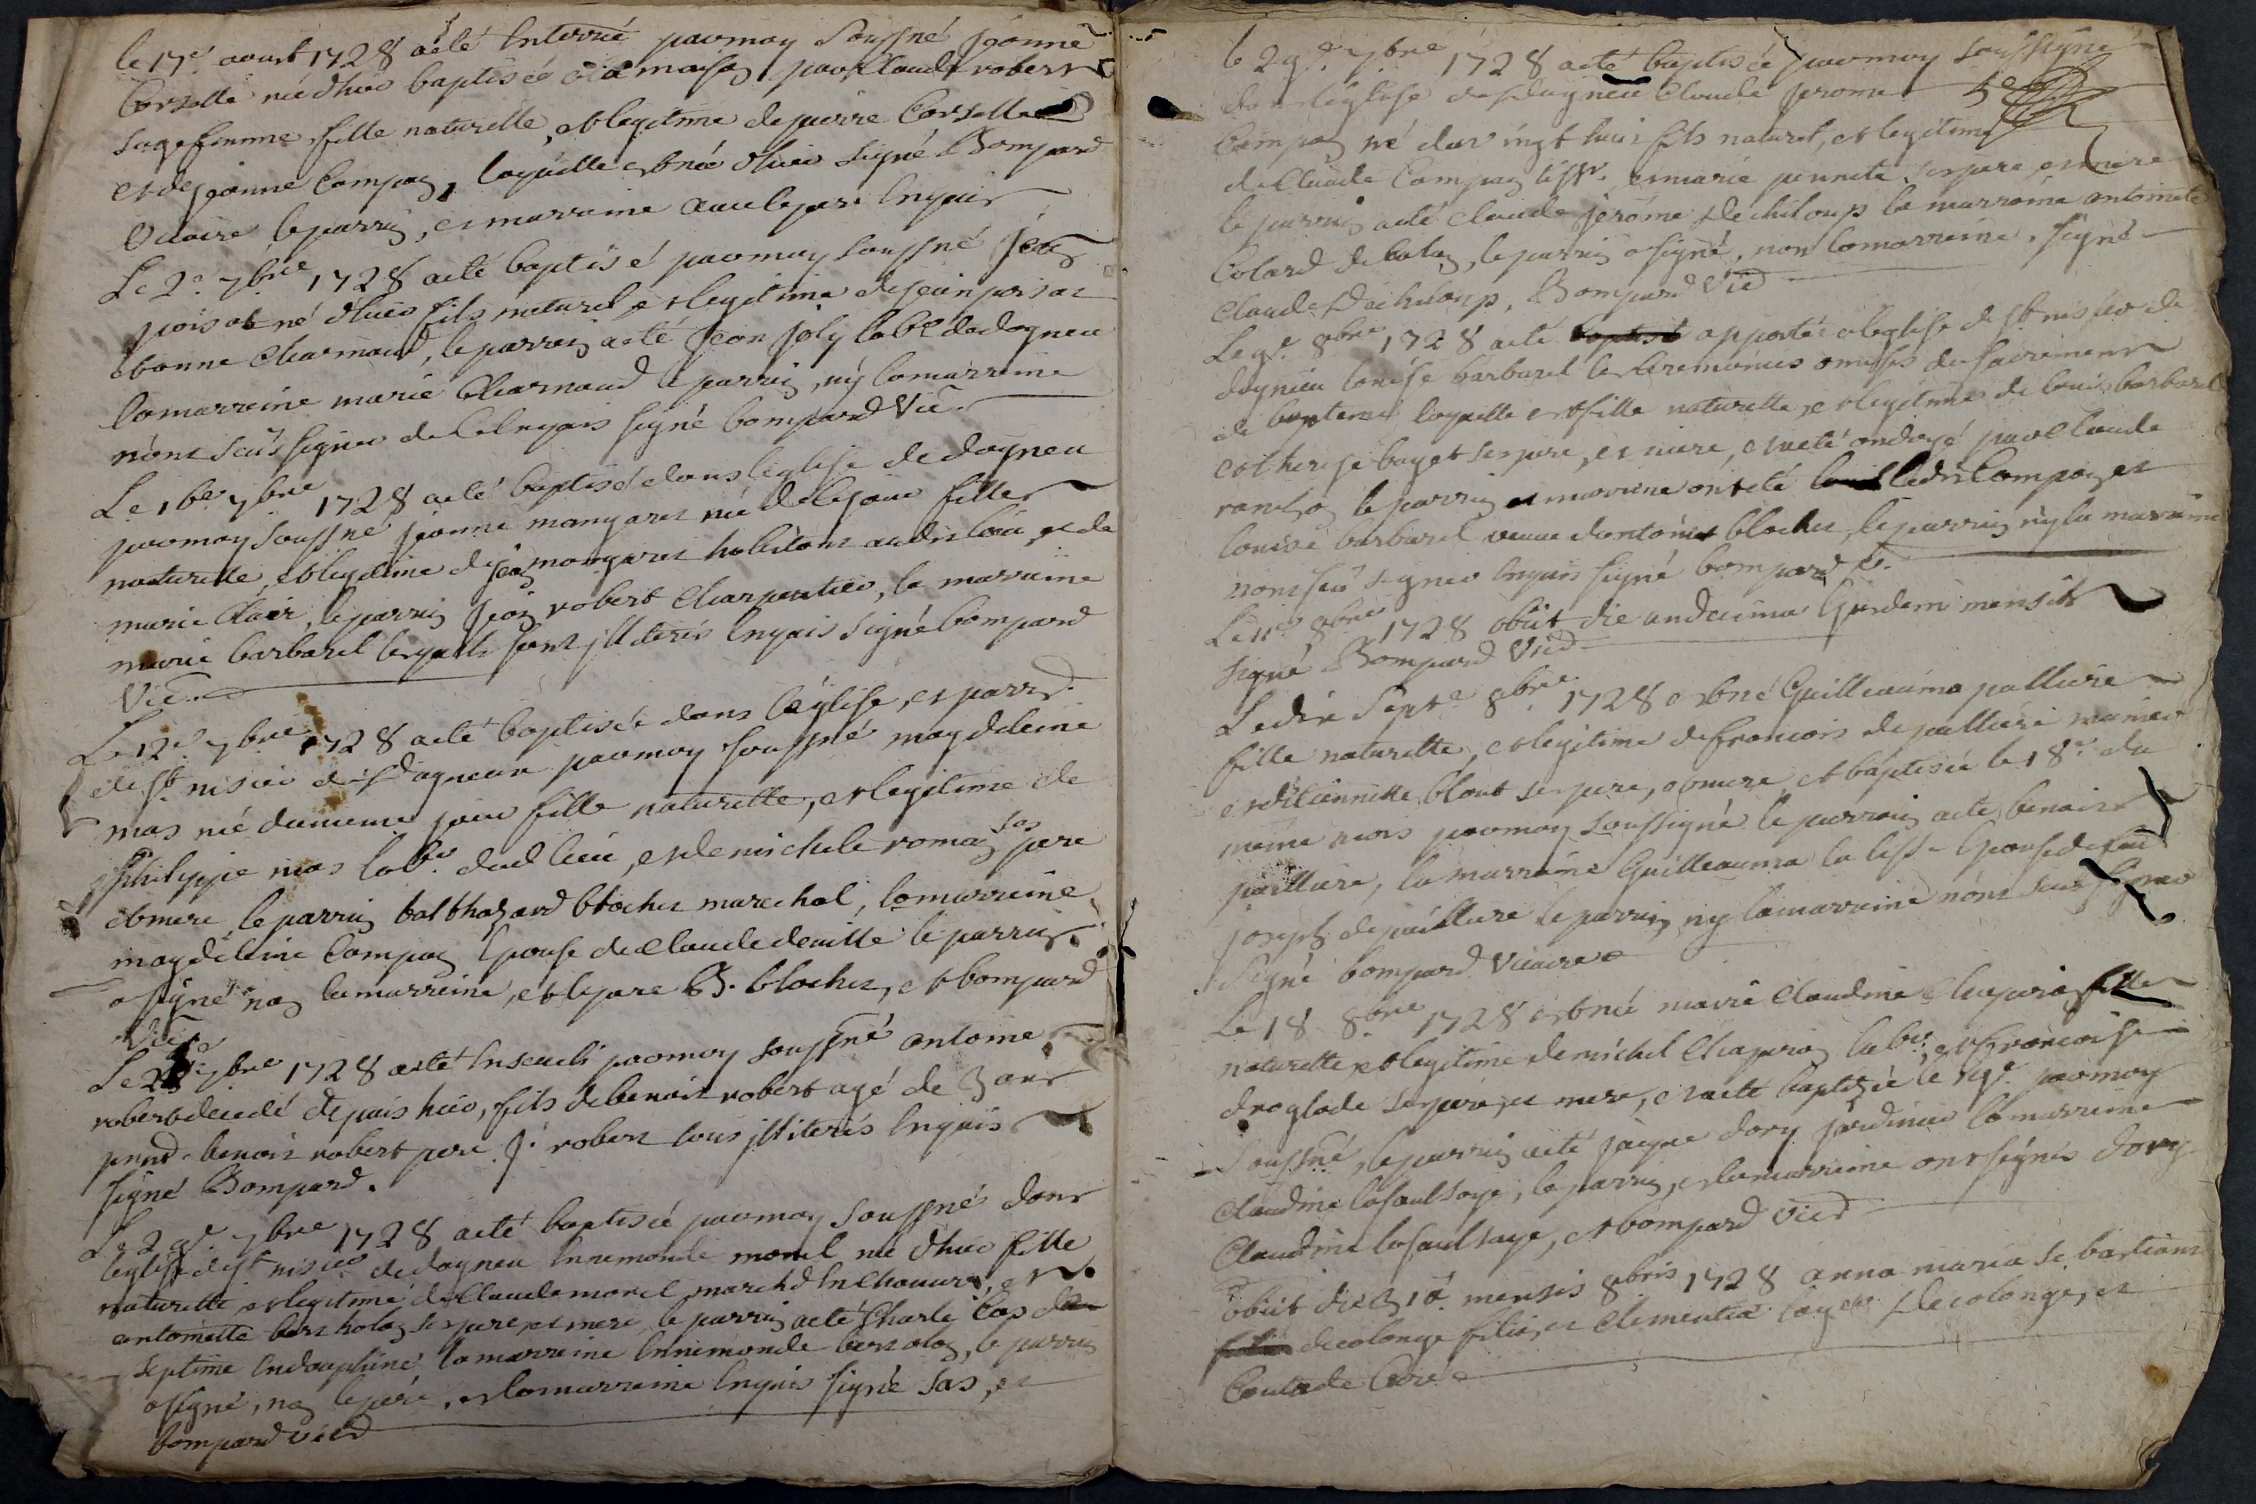 le 17e. aoust 1728 a été enterrée par moy soussné jeanne
Corselle née d'hier baptisée à la maison par Claude robert
sage femme fille naturelle, et legitime de pierre Corselle
et de jeanne Compag, laquelle est née d'hier signé Bompard
Vicaire le parrin, et marraine avec le pere enquis
Le 2e. 7bre 1728 a été baptisé par moy soussné jean
poisat né d'hier fils naturel, et legitime de jean poisat
et bonne Charnaud, le parrein a été jean joly labr de dagneu
la marreine marie Charnaud le parrin, ny la marreine
n'ont sçus signer de ce enquis signé bompard Vic.
Le 16e. 7bre 1728 a été baptisé dans l'eglise de dagneu
par moy soussné jeanne mangaret née de ce jour fille
naturelle, et legitime de jean mangaret habitant audit lieu, et de
marie Clair, le parrin jean robert Charpentier, la marreine
marie barbarel lesquels sont illiterés enquis signé bompard
Vic.
Le 12e. 7bre 1728 a été baptisée dans l'église, et parr.
de st. nisier de dagneux par moy soussné magdeleine
mas née du meme jour fille naturelle, et legitime de
philippe mas labr. dud lieu, et de michele romans ses pere
et mere, le parrin balthazard blochet marechal, la marreine
magdeleine Compag epouse de Claude deville le parrin
a signé non la marreine, et le pere B. blochet, et bompard
Vic.
Le 7bre 1728 a été enseveli par moy soussné antoine
robert decedé depuis hier, fils de benoit robert agé de 3 ans
prnts. benoit robert pere j. robert tous illiterés enquis
signé Bompard.
Le 29e. 7bre 1728 a été baptisée par moy soussné dans
leglise de st nisier de dagneu ennemonde morel née d'hier fille
naturelle, et legitime de Claude morel marchd en Chanvre, et
antoinette bertholon ses pere, et mere, le parrin a été Charle Sas de
septime en dauphiné la marreine ennemonde bertolon, le parrin
a signé, non le pere, et la marreine enquis signé Sas, et
bompard vicd
le 29e. 7bre 1728 a été baptisée par moy soussigné
dans l'église de dagneu Claude jerome
Compag né d'avingt hier fils naturel, et legitime
de Claude Compag tissr. et marie perrete ses pere et mere
le parrin a été Claude jerôme de chiloup la marreine antoinete
Colard de balan, le parrin a signé, non la marreine. signé
Claude Dechiloup, Bompard Vicd
Le 9e. 8bre 1728 a été apportée a l'eglise de st nisier de
dagnieu louise barbarel les ceremonies omises du sacrement
de bapteme laquelle est fille naturelle, et legitime de louis barbarel
et therese bayet ses pere, et mere, et a été ondoyé par Claude
le parrin et marreine ont été Compag et
louise barbarel veuve d'antoine blochet, le parrin ny la marreine
n'ont sçu signer enquis signé bompard v.
Le 11e 8bre 1728 obiit die undecima ejusdem mensis
signé Bompard Vicd
Le dix sept.e 8bre. 1728 est né Guilleauma palliere
fille naturelle, et legitime de françois de palliere
et d'etiennette blout ses pere, et mere, et baptisée le 18e. du
meme mois par moy soussigné le parrein a été benoist
palliere, la marreine Guilleauma la tisse epouse de feu
joseph de palliere le parrein, ny la marreine n'ont sçus signer
Signé bompard Vicaire
Le 18 8bre 1728 est née marie Claudine Chaperon fille
naturelle et legitime de michel Chaperon labr., et françoise
droglade ses pere, et mere, et a été baptisée le 19e. par moy
soussné, le parrin a été jaque dory jardinier la marreine
Claudine lasaulsaye, le parrin, et la marreine ont signés dory
Claudine lasaulsaye, et bompard Vicd
obiit die 31a. mensis 8bris 1728 anna maria sebastiana
decolonge filia, et Clementia decolonge, et
Coulade Curé